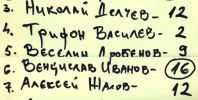 3. Николай Делчев - 12
4. Трифон Василев - 2
5. Веселин Дробенов - 9
6. Венцислав Иванов - 16
7. Алексей Шахов - 12